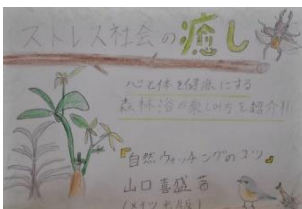 ストレス社会の癒し
心と体を健康にする
森林浴の楽しみ方を紹介!!
『自然ウォッチングのコツ』
山口喜盛著
(メイツ出版)